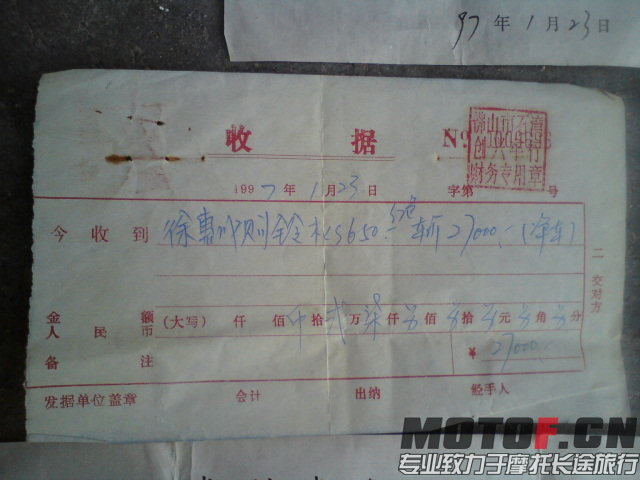 97 年 1 月 23 日
收 据
石湾
财务专用章
1997 年 1 月 23 日 字第 号
今 收 到 徐惠 铃木LS650 红色 车 27000.-(净车)
二 交对方
金额 人民币 (大写) 仟 佰 拾 贰 万 柒 仟 佰 拾 元 角 分
备 注 ¥ 27000.
发据单位盖章 会计 出纳 经手人
MOTOF.CN
专业致力于摩托长途旅行